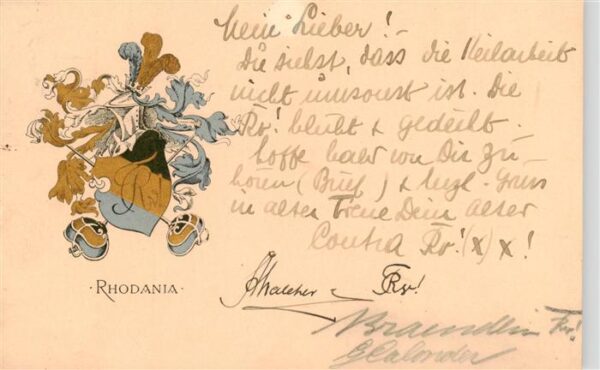 Mein Lieber! -
Du siehst, dass die Keilarbeit
nicht umsonst ist. Die
Rv! blüht & gedeiht.
hoffe bald von Dir zu
hören (Brief) & hzgl. Gruss
in alter Treue Dein alter
Contra Rv! (x) x!
· RHODANIA ·
Rv!